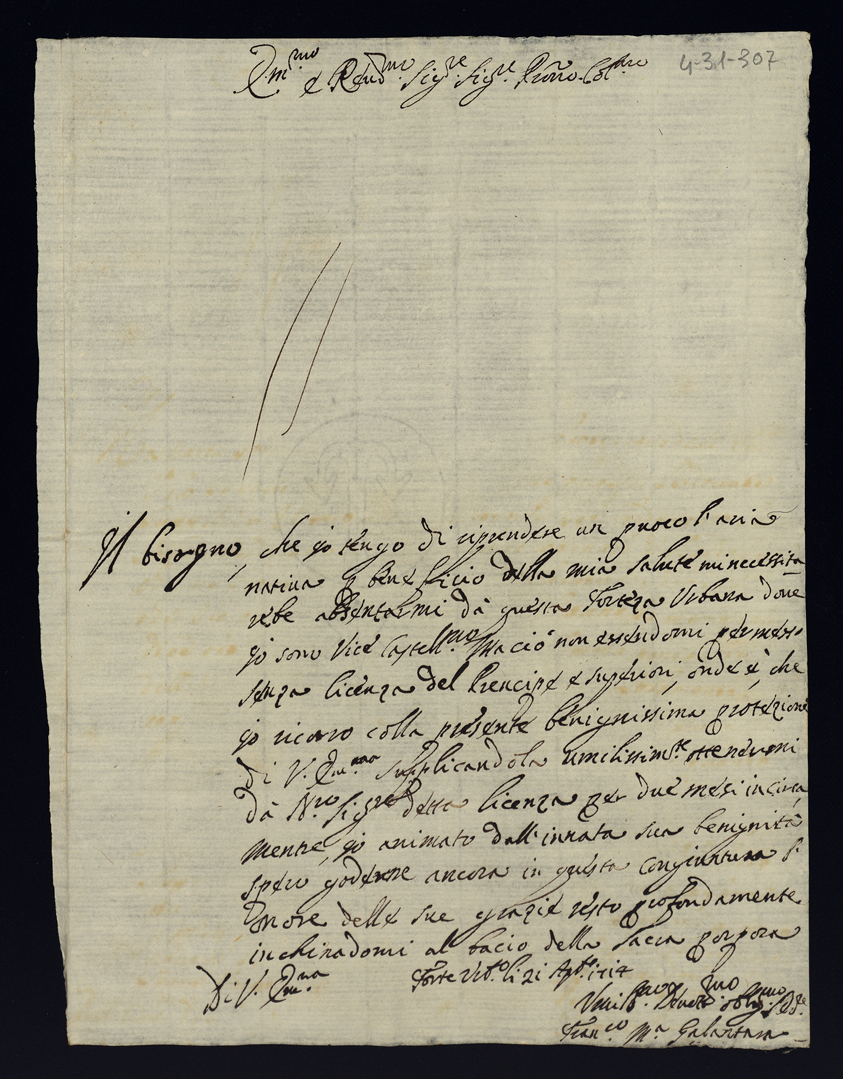 4-31-307
Em.mo e Rev.mo Sig.re Sig.re Pron. Col.mo
Il bisogno, che io tengo di riprendere un puoco l'aria
nativa p benefficio della mia salute mi necessita
rebe absentarmi dà questa Forteza Urbana dove
io sono Vice Castell.no Ma ciò non essendomi permesso
senza licenza del Prencipe e superiori, onde è, che
io ricorro colla presente benignissima protezione
di V. Em.nza supplicandola umilissim.te ottenermi
dà N.ro Sig.re detta licenza per due mesi incirca,
mentre, io animato dall'innata sua benignità
spero goderne ancora in questa congiuntura l'
onore delle sue grazie resto profondamente
inchinadomi al bacio della Sacra porpora
Di V. Em.za
Forte Urb.o li 21 1714
Umil.mo Devot.mo oblig.mo
Fran.co M.a Galantara